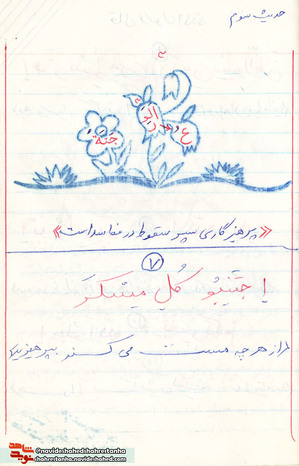 حدیث سوم
۳
الورع
جنة
«پرهیزگاری سپر سقوط در مفاسد است»
۷
اِجتَنِبُو کُلِ مُسْکَرَ
از هر چه مست می کند بپرهیزید
نوید شاهد
navideshahedshahrestanha
shahrestanha.navideshahed.com